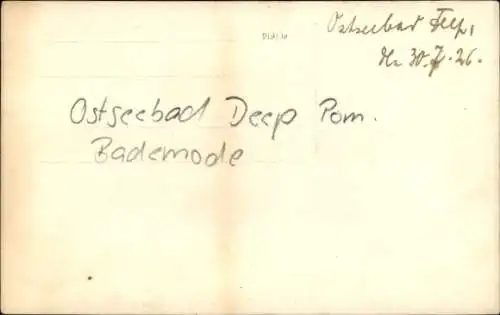 Ostseebad Deep,
30.7.26.
Ostseebad Deep Pom.
Bademode